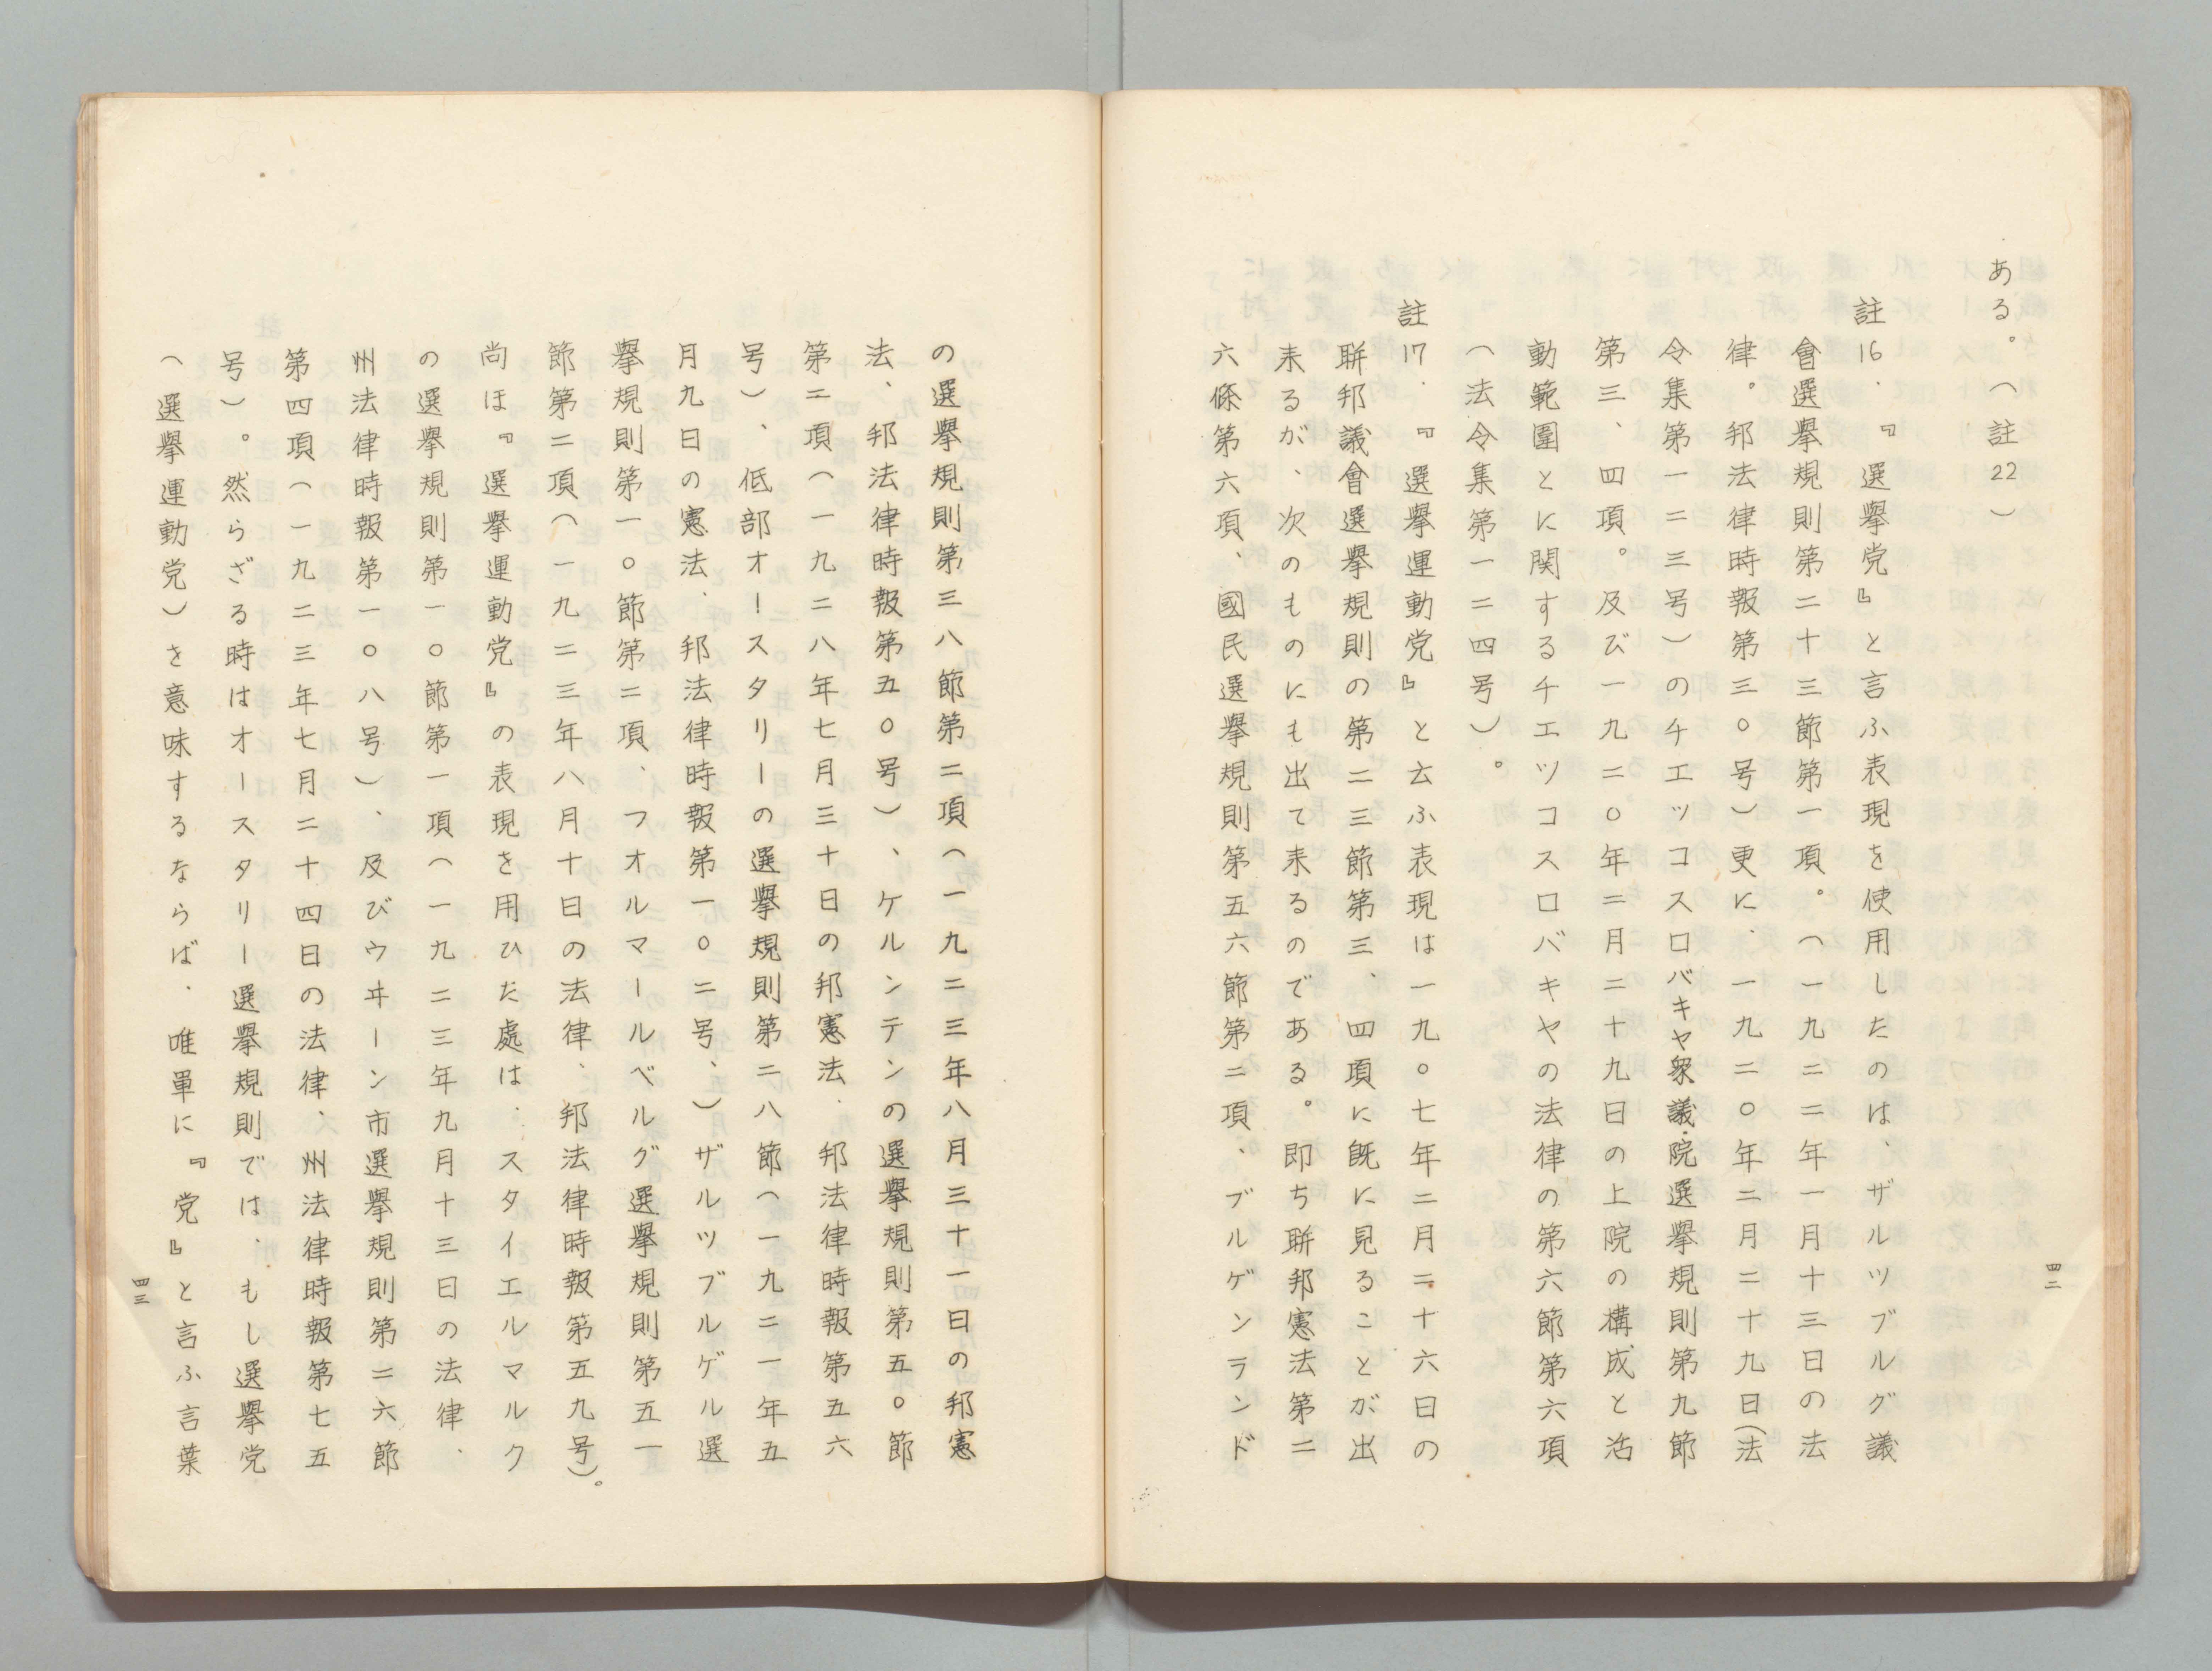 ある。(註22)
註16.『選擧党』と言ふ表現を使用したのは、ザルツブルグ議
會選擧規則第二十三節第一項。(一九二二年一月十三日の法
律。邦法律時報第三〇号)更に、一九二〇年二月二十九日(法
令集第一二三号)のチエッコスロバキヤ衆議院選擧規則第九節
第三、四項。及び一九二〇年二月二十九日の上院の構成と活
動範圍とに関するチエツコスロバキヤの法律の第六節第六項
(法令集第一二四号)。
註17.『選擧運動党』と云ふ表現は一九〇七年二月二十六日の
聨邦議會選擧規則の第二三節第三、四項に旣に見ることが出
来るが、次のものにも出て来るのである。即ち聨邦憲法第二
六條第六項、國民選擧規則第五六節第二項、ブルゲンランド
四二
の選擧規則第三八節第二項(一九二三年八月三十一日の邦憲
法、邦法律時報第五〇号)、ケルンテンの選擧規則第五〇節
第二項(一九二八年七月三十日の邦憲法.邦法律時報第五六
号)、低部オースタリーの選擧規則第二八節(一九二一年五
月九日の憲法、邦法律時報第一〇二号、)ザルツブルゲル選
擧規則第一〇節第二項、フオルマールベルグ選擧規則第五一
節第二項(一九二三年八月十日の法律、邦法律時報第五九号)。
尚ほ『選擧運動党』の表現を用ひた處は.スタイエルマルク
の選擧規則第一〇節第一項(一九二三年九月十三日の法律、
州法律時報第一〇八号)、及びウヰーン市選擧規則第二六節
第四項(一九二三年七月二十四日の法律、州法律時報第七五
号)。然らざる時はオースタリー選擧規則では、もし選擧党
(選擧運動党)を意味するならば.唯單に『党』と言ふ言葉
四三